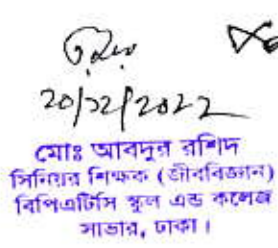 20/12/2022
মোঃ আবদুর রশিদ
সিনিয়র শিক্ষক (জীববিজ্ঞান)
বিপিএটিসি স্কুল এন্ড কলেজ
সাভার, ঢাকা।